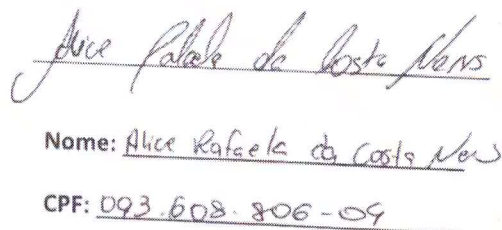 Alice Rafaela da Costa Neves
Nome: Alice Rafaela da Costa Neves
CPF: 093.608.806-04